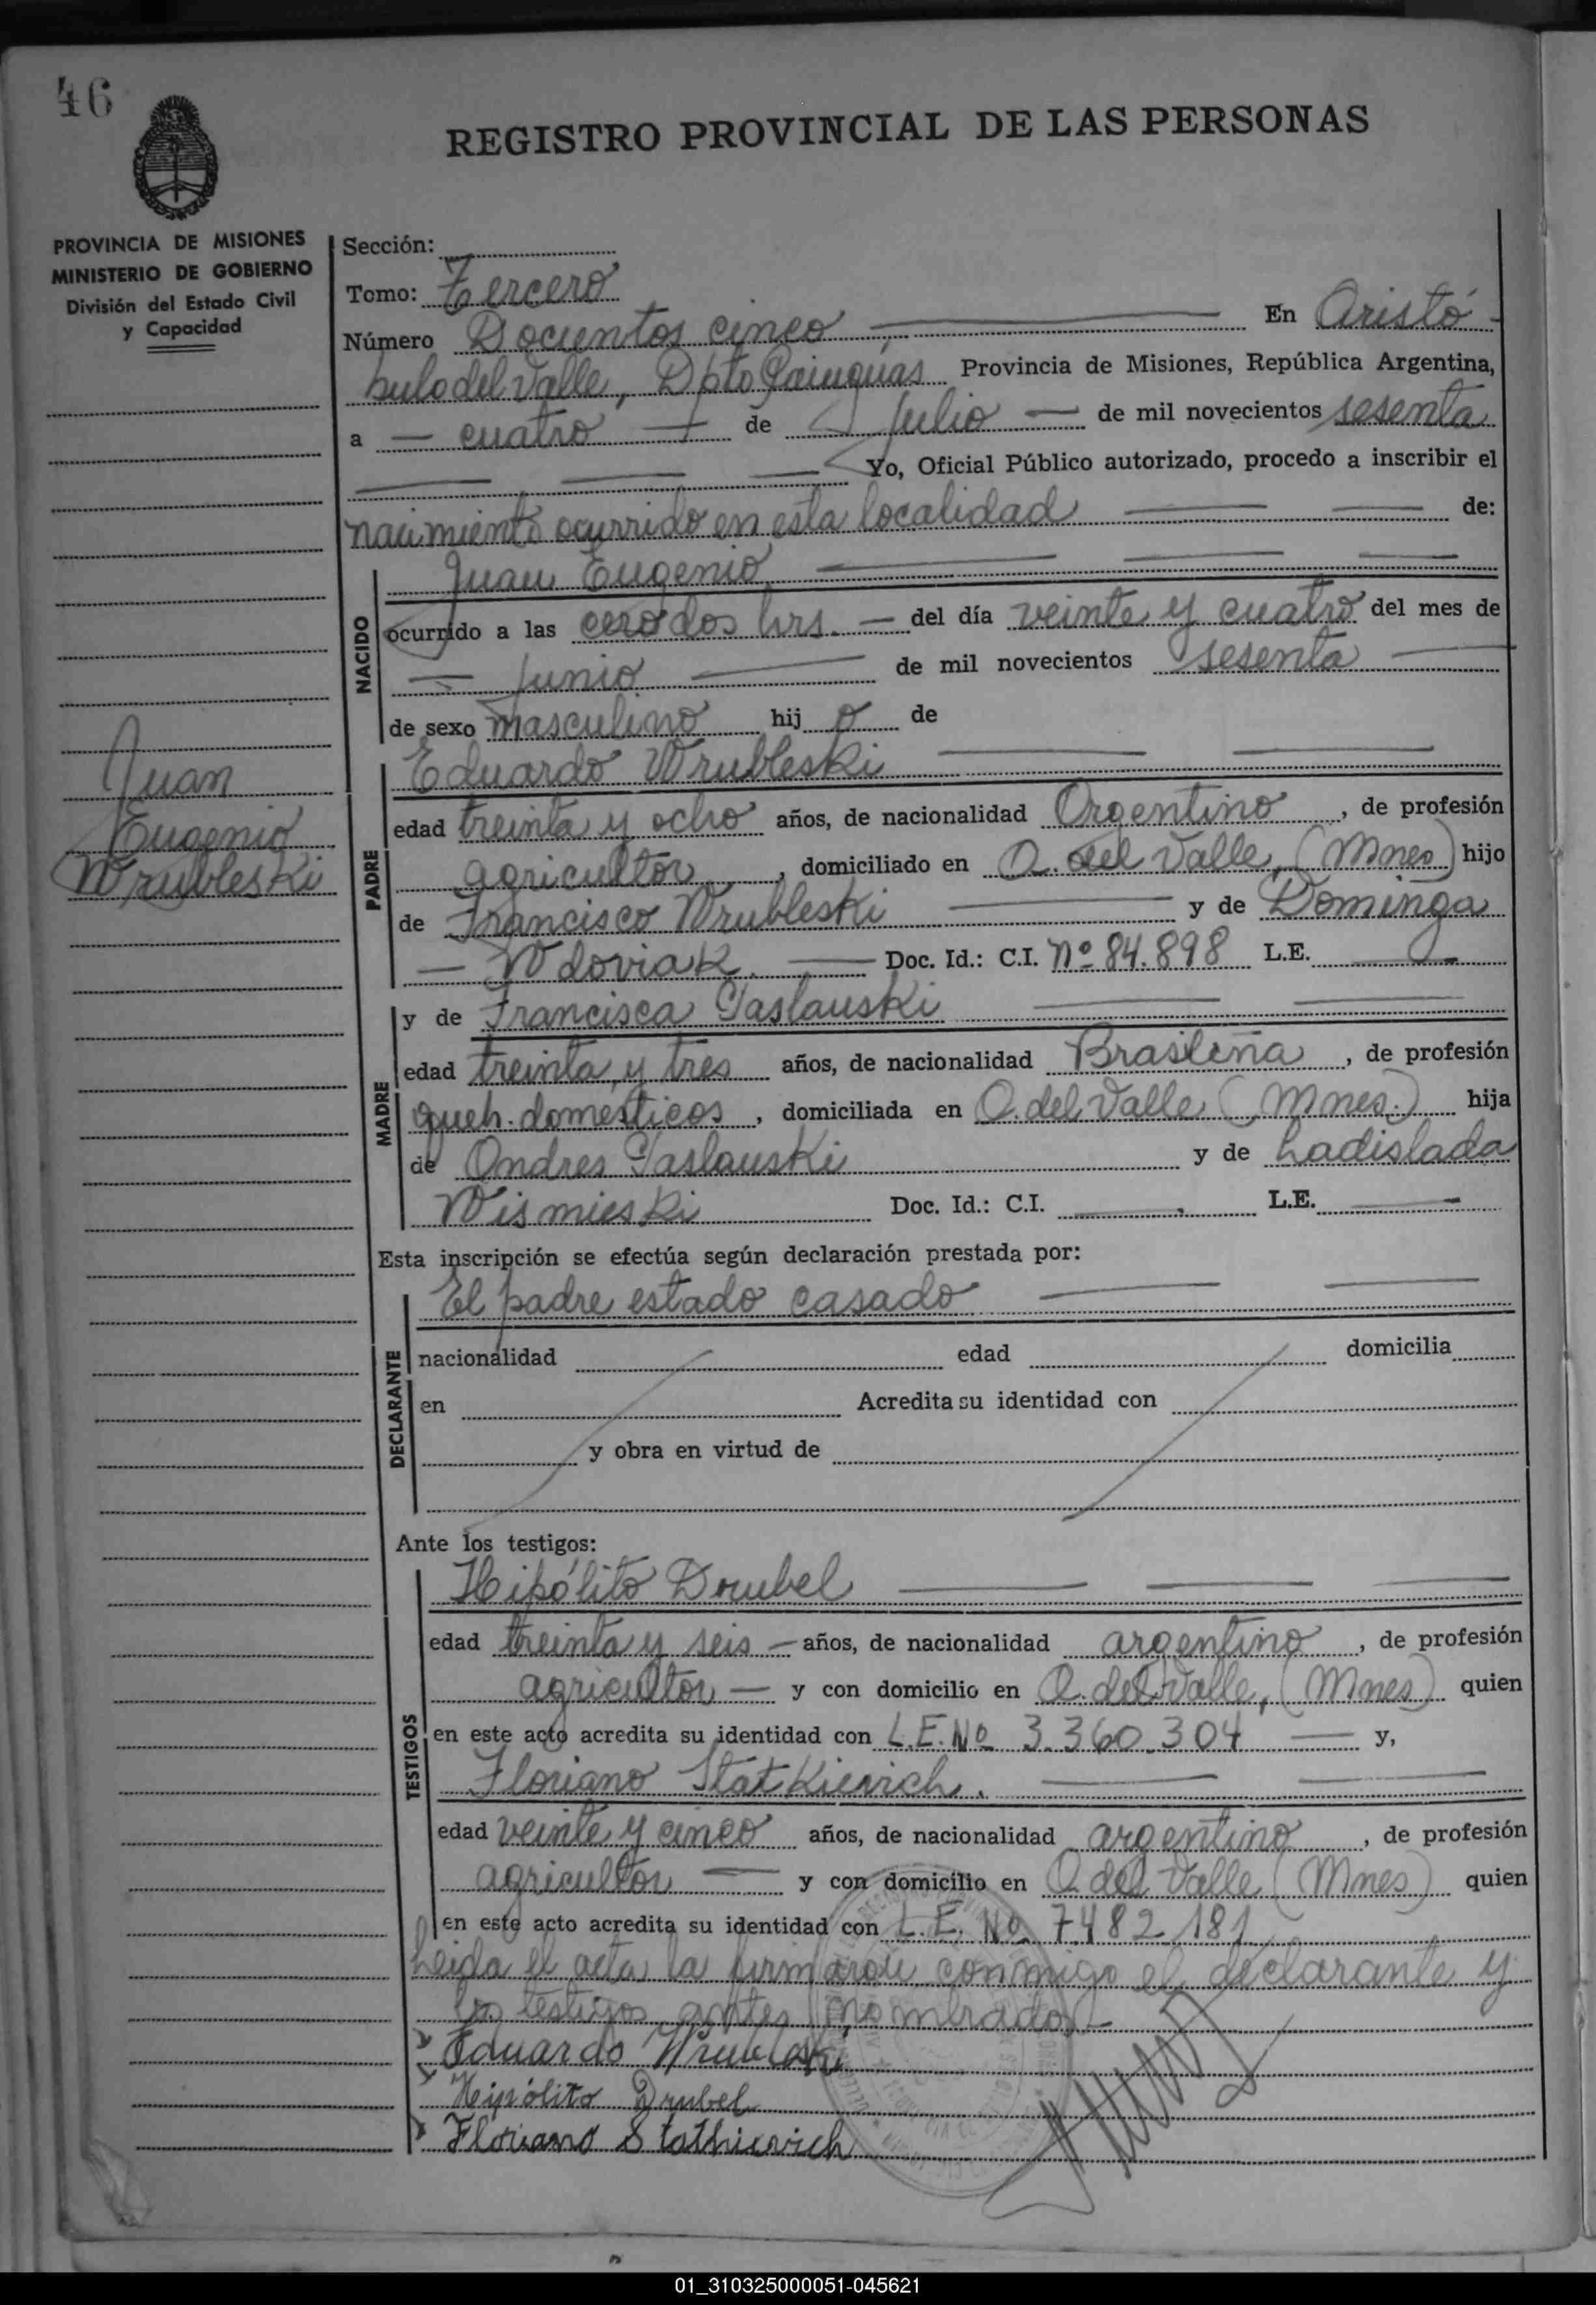 46
REGISTRO PROVINCIAL DE LAS PERSONAS
PROVINCIA DE MISIONES
MINISTERIO DE GOBIERNO
División del Estado Civil
y Capacidad
Sección:
Tomo: Tercero
Número Docientos cinco En Aristó
bulo del Valle, Dpto Cainguás Provincia de Misiones, República Argentina,
a cuatro de Julio de mil novecientos sesenta
Yo, Oficial Público autorizado, procedo a inscribir el
nacimiento ocurrido en esta localidad de:
NACIDO
Juan Eugenio
ocurrido a las cero dos hrs. del día veinte y cuatro del mes de
junio de mil novecientos sesenta
de sexo masculino hij o de
Juan
Eugenio
Wrubleski
PADRE
Eduardo Wrubleski
edad treinta y ocho años, de nacionalidad Argentino, de profesión
agricultor, domiciliado en A. del Valle, (Mnes) hijo
de Francisco Wrubleski y de Dominga
Wdoviak. Doc. Id.: C.I. Nº 84.898 L.E.
MADRE
y de Francisca Paslauski
edad treinta y tres años, de nacionalidad Brasileña, de profesión
queh. domésticos, domiciliada en A. del Valle (Mnes.) hija
de Andres Paslauski y de Ladislada
Wismieski Doc. Id.: C.I. L.E.
Esta inscripción se efectúa según declaración prestada por:
DECLARANTE
El padre estado casado
nacionalidad edad domicilia
en Acredita su identidad con
y obra en virtud de
Ante los testigos:
TESTIGOS
Hipólito Drubel
edad treinta y seis años, de nacionalidad argentino, de profesión
agricultor y con domicilio en A. del Valle, (Mnes) quien
en este acto acredita su identidad con L.E. Nº 3.360.304 y,
Floriano Statkievich.
edad veinte y cinco años, de nacionalidad argentino, de profesión
agricultor y con domicilio en A. del Valle (Mnes) quien
en este acto acredita su identidad con L.E. Nº 7482181
Leida el acta la firmaron conmigo el declarante y
los testigos antes nombrados
Eduardo Wrubleski
Hipólito Drubel
Floriano Stathievich
01_310325000051-045621